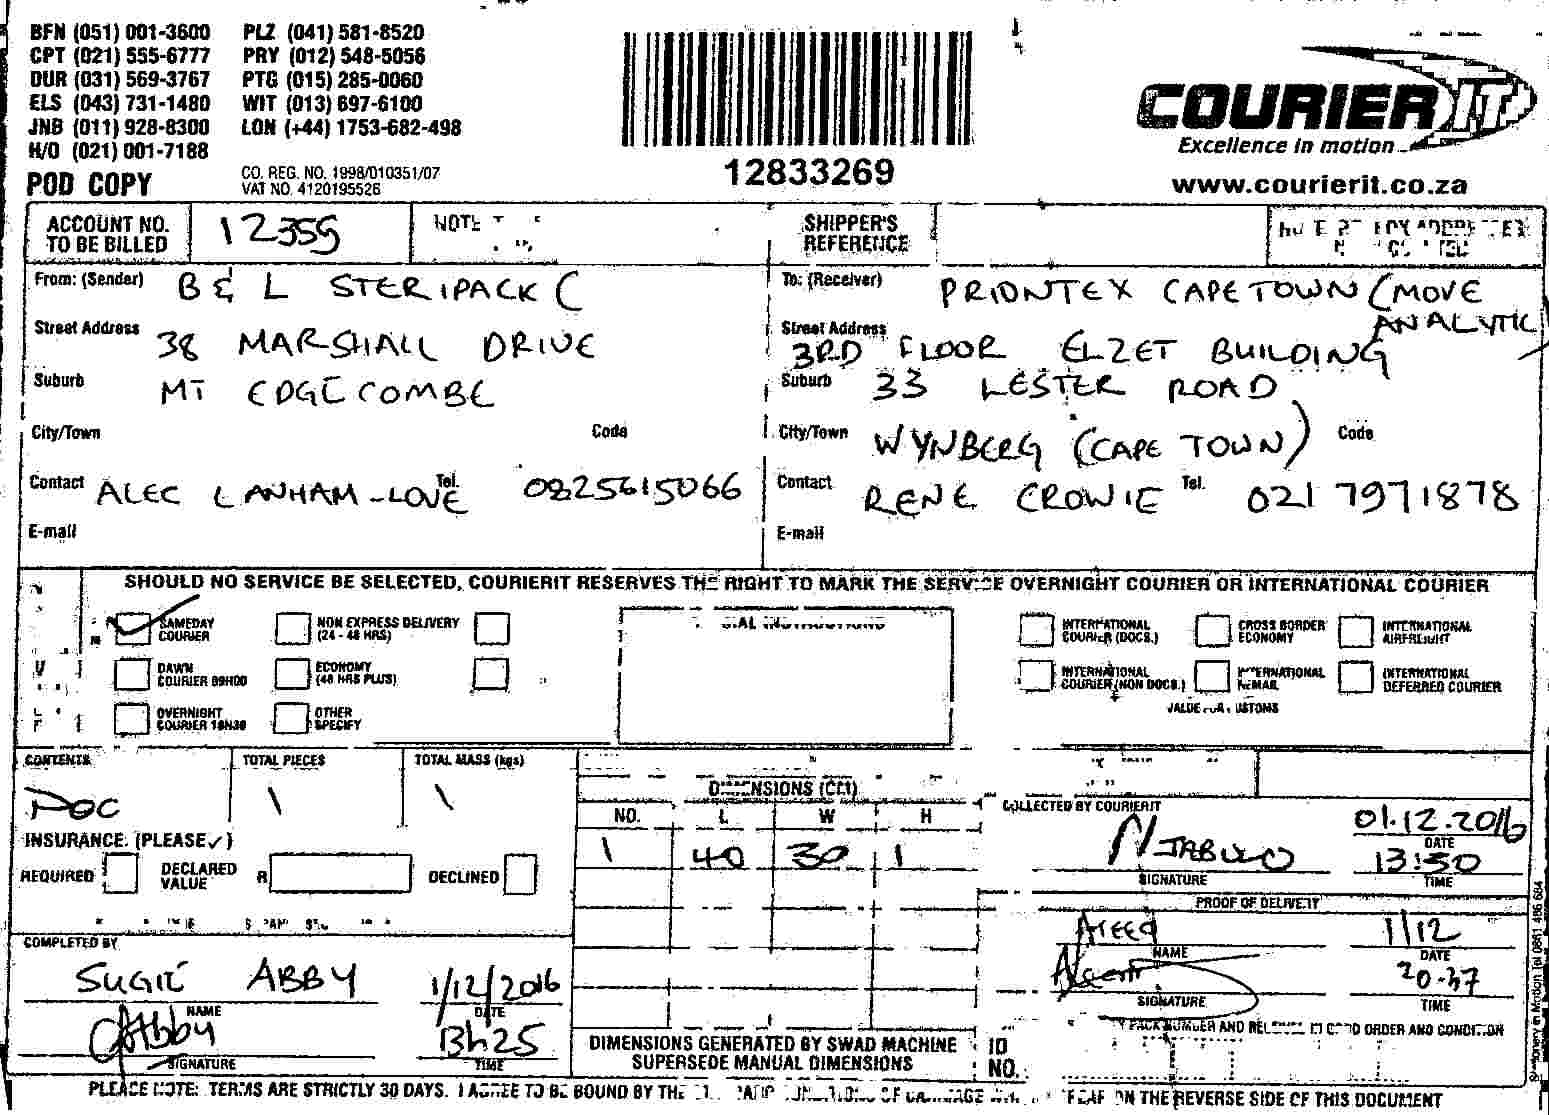 BFN (051) 001-3600 PLZ (041) 581-8520
CPT (021) 555-6777 PRY (012) 548-5056
DUR (031) 569-3767 PTG (015) 285-0060
ELS (043) 731-1480 WIT (013) 697-6100
JNB (011) 928-8300 LON (+44) 1753-682-498
H/O (021) 001-7188
POD COPY
CO. REG. NO. 1998/010351/07
VAT NO. 4120195526
12833269
COURIER IT
Excellence in motion
www.courierit.co.za
ACCOUNT NO. TO BE BILLED 12355
NOTE
SHIPPER'S REFERENCE
From: (Sender) B & L STERIPACK (
Street Address 38 MARSHALL DRIVE
Suburb MT EDGECOMBE
City/Town Code
Contact ALEC LANHAM-LOVE Tel. 0825615066
E-mail
To: (Receiver) PRIONTEX CAPETOWN (MOVE
ANALYTIC
Street Address 3RD FLOOR ELZET BUILDING
Suburb 33 LESTER ROAD
City/Town WYNBERG (CAPE TOWN) Code
Contact RENE CROWIE Tel. 021 7971878
E-mail
SHOULD NO SERVICE BE SELECTED, COURIERIT RESERVES THE RIGHT TO MARK THE SERVICE OVERNIGHT COURIER OR INTERNATIONAL COURIER
SAMEDAY COURIER
NON EXPRESS DELIVERY (24 - 48 HRS)
DAWN COURIER 09H00
ECONOMY (48 HRS PLUS)
OVERNIGHT COURIER 10H30
OTHER SPECIFY
INTERNATIONAL COURIER (DOCS.)
CROSS BORDER ECONOMY
INTERNATIONAL AIRFREIGHT
INTERNATIONAL COURIER (NON DOCS.)
INTERNATIONAL
INTERNATIONAL DEFERRED COURIER
CONTENTS DOC
TOTAL PIECES 1
TOTAL MASS (kgs) 1
INSURANCE: (PLEASE ✓)
REQUIRED DECLARED VALUE R DECLINED
DIMENSIONS (CM)
NO. L W H
1 40 30 1
COLLECTED BY COURIERIT
NJABULO 01.12.2016
DATE
13:50
SIGNATURE TIME
PROOF OF DELIVERY
1/12
NAME DATE
20-37
SIGNATURE TIME
COMPLETED BY
SUGIE ABBY 1/12/2016
NAME DATE
Abby 13h25
SIGNATURE TIME
DIMENSIONS GENERATED BY SWAD MACHINE
SUPERSEDE MANUAL DIMENSIONS
ID NO.
NUMBER AND ORDER AND CONDITION
PLEASE NOTE: TERMS ARE STRICTLY 30 DAYS. I AGREE TO BE BOUND BY THE OF ON THE REVERSE SIDE OF THIS DOCUMENT